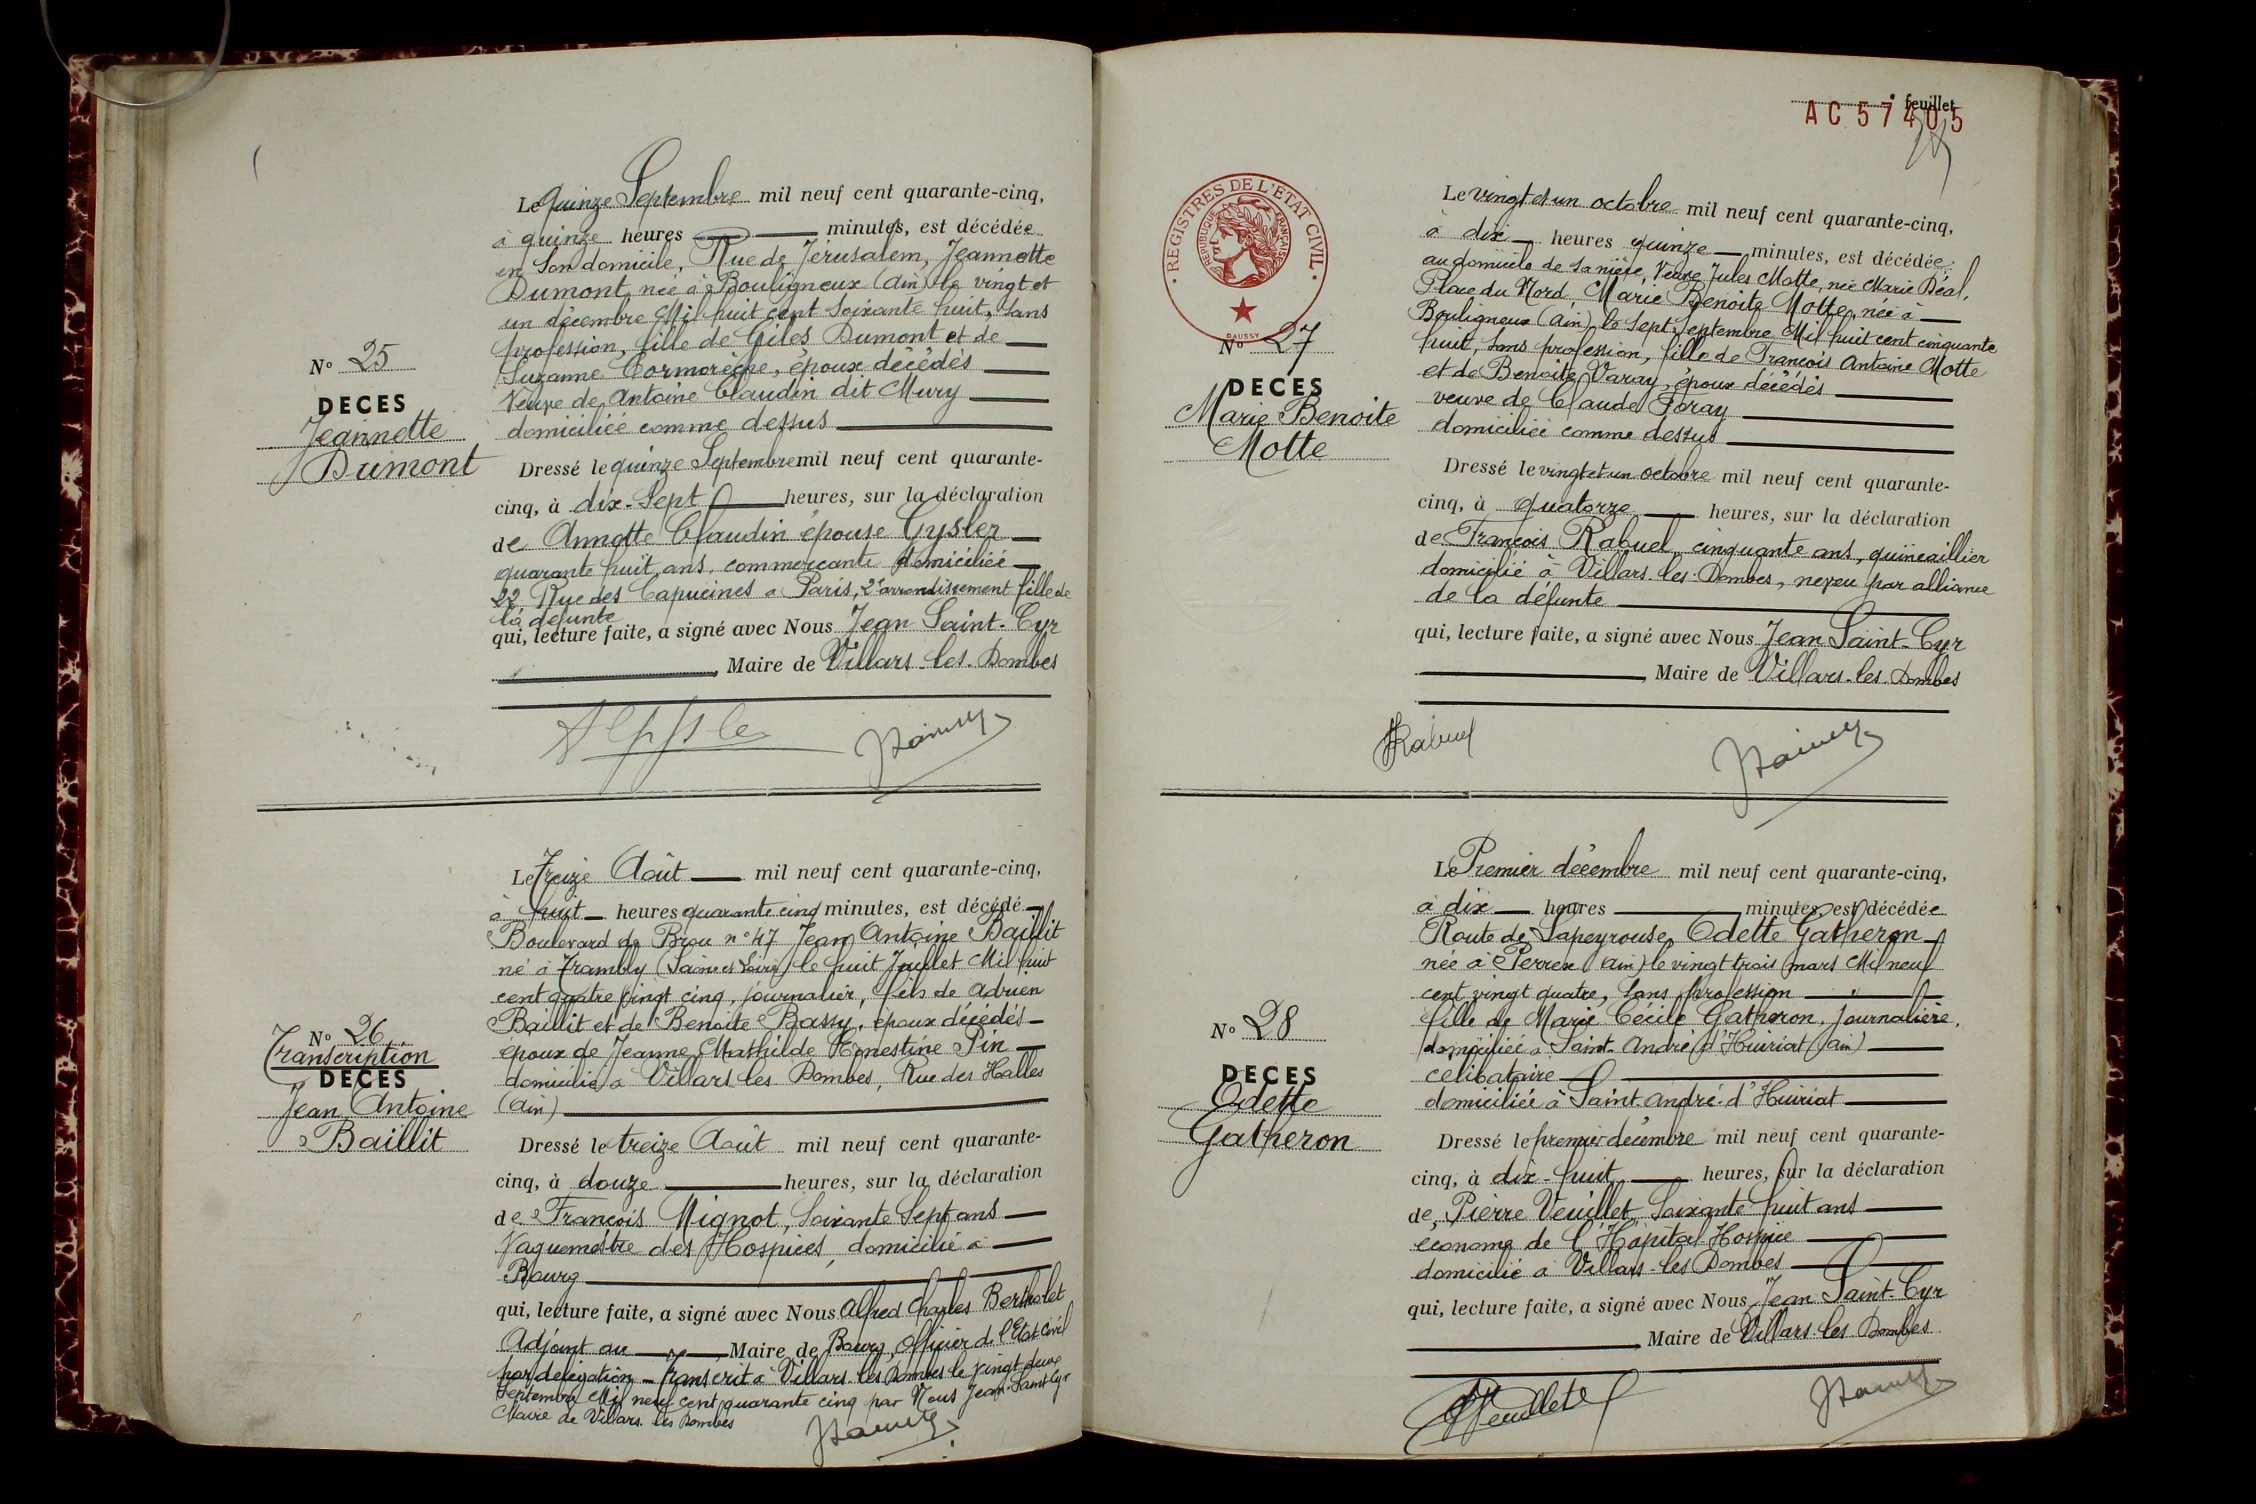 Le quinze Septembre mil neuf cent quarante-cinq,
à quinze heures minutes, est décédée
en son domicile, Rue de Jérusalem, Jeannette
Dumont, née à Bouligneux (Ain) le vingt et
un décembre Mil huit cent soixante huit, sans
profession, fille de Giles Dumont et de
Suzanne Cormorèche, époux décédés
Veuve de Antoine Claudin dit Mury
domiciliée comme dessus
No 25
DECES
Jeannette
Dumont
Dressé le quinze Septembre mil neuf cent quarante-
cinq, à dix-sept heures, sur la déclaration
de Annette Claudin épouse Gysler
quarante huit ans, commerçante domiciliée
22 Rue des Capucines à Paris, 2e arrondissement fille de
la défunte
qui, lecture faite, a signé avec Nous Jean Saint-Cyr
, Maire de Villars-les-Dombes
Le Treize Août mil neuf cent quarante-cinq,
à huit heures quarante cinq minutes, est décédé
Boulevard de Brou n° 47 Jean Antoine Baillit
né à Trambly (Saône et Loire) le huit Juillet Mil huit
cent quatre vingt cinq, journalier, fils de Adrien
Baillit et de Benoite Bassy, époux décédés
époux de Jeanne Mathilde Ernestine Pin
domicilié à Villars les Dombes, Rue des Halles
(Ain)
No 26
Transcription
DECES
Jean Antoine
Baillit
Dressé le treize Août mil neuf cent quarante-
cinq, à douze heures, sur la déclaration
de François Mignot, soixante sept ans
Vaguemestre des Hospices, domicilié à
Bourg
qui, lecture faite, a signé avec Nous Alfred Charles Bertholet
Adjoint au , Maire de Bourg, officier de l'Etat-Civil
par délégation - Transcrit à Villars les Dombes le vingt deux
Septembre Mil neuf cent quarante cinq par Nous Jean Saint-Cyr
Maire de Villars les Dombes
feuillet
AC 57405
REGISTRES DE L'ETAT CIVIL
REPUBLIQUE FRANÇAISE
DAUSSY
Le vingt et un octobre mil neuf cent quarante-cinq,
à dix heures quinze minutes, est décédée
au domicile de sa nièce, Veuve Jules Motte, née Marie Déal,
Place du Nord, Marie Benoite Motte, née à
Bouligneux (Ain) le sept Septembre Mil huit cent cinquante
huit, sans profession, fille de François Antoine Motte
et de Benoite Varay, époux décédés
veuve de Claude Foray
domiciliée comme dessus
No 27
DECES
Marie Benoite
Motte
Dressé le vingt et un octobre mil neuf cent quarante-
cinq, à quatorze heures, sur la déclaration
de François Rabuel, cinquante ans, quincaillier
domicilié à Villars-les-Dombes, neveu par alliance
de la défunte
qui, lecture faite, a signé avec Nous Jean Saint-Cyr
, Maire de Villars-les-Dombes
Rabuel
Le Premier décembre mil neuf cent quarante-cinq,
à dix heures minutes, est décédée
Route de Lapeyrouse, Odette Gatheron
née à Perrex (Ain) le vingt trois mars Mil neuf
cent vingt quatre, sans profession
fille de Marie Cécile Gatheron, journalière,
domiciliée à Saint-André d'Huiriat (Ain)
célibataire
domiciliée à Saint-André-d'Huiriat
No 28
DECES
Odette
Gatheron
Dressé le premier décembre mil neuf cent quarante-
cinq, à dix-huit heures, sur la déclaration
de Pierre Veuillet, soixante huit ans
économe de l'Hôpital-Hospice
domicilié à Villars-les-Dombes
qui, lecture faite, a signé avec Nous Jean Saint-Cyr
Maire de Villars-les-Dombes